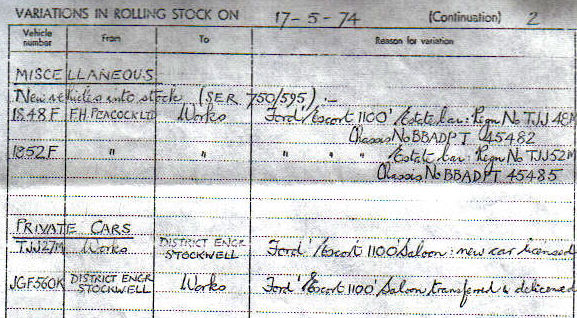 VARIATIONS IN ROLLING STOCK ON 17-5-74 (Continuation) 2
Vehicle number From To Reason for variation
MISCELLANEOUS
New vehicles into stock (SER 750/595) :-
1848F F.H. PEACOCK LTD Works Ford 'Escort 1100' Estate car: Regn No TJJ 48M
Chassis No BBADPT 45482
1852F " " " " " Estate car: Regn No TJJ52M
Chassis No BBADPT 45485
PRIVATE CARS
TJJ27M Works DISTRICT ENGR. STOCKWELL Ford 'Escort 1100' Saloon: new car licensed
JGF560K DISTRICT ENGR. STOCKWELL Works Ford 'Escort 1100' Saloon transferred & delicensed